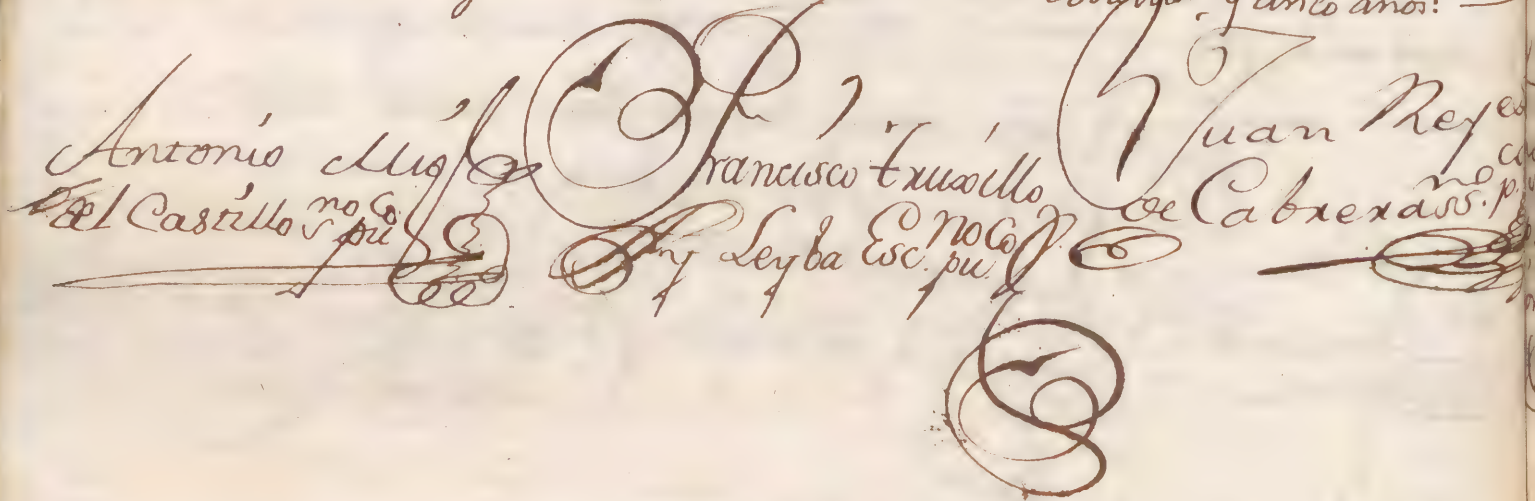 y cinco años.
Antonio Mig.l
del Castillo s.no pu.co
Francisco truxillo
y Leyba Esc.no pu.co
Juan Reyes
de Cabrera ss.no p.